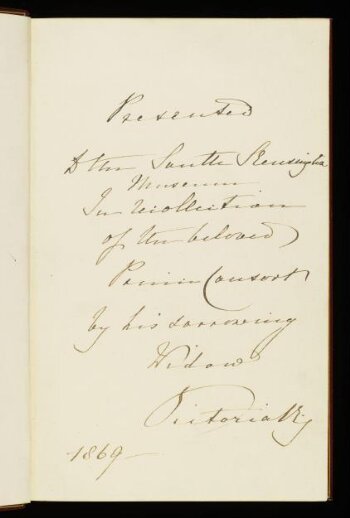 Presented
to the South Kensington
Museum
In recollection
of the beloved
Prince Consort
by his sorrowing
Widow
Victoria Rg
1869